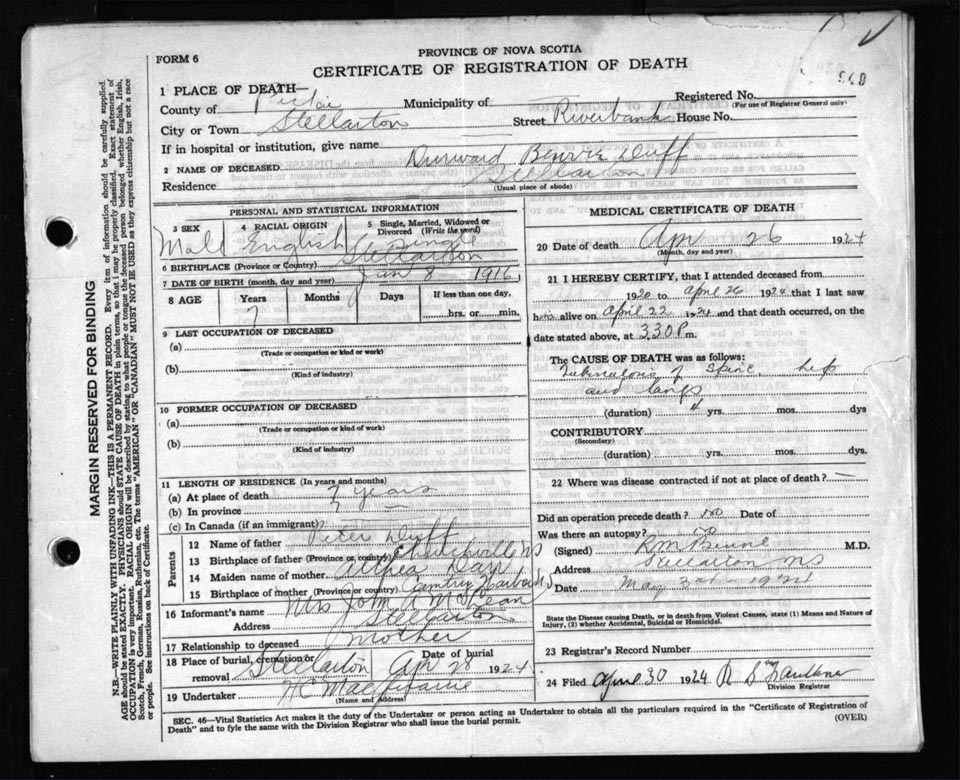 FORM 6
PROVINCE OF NOVA SCOTIA
CERTIFICATE OF REGISTRATION OF DEATH
1 PLACE OF DEATH—
Registered No.
940
County of Pictou Municipality of
(For use of Registrar General only)
City or Town Stellarton Street Riverbank House No.
If in hospital or institution, give name
2 NAME OF DECEASED Durward Duff
Residence Stellarton
(Usual place of abode)
PERSONAL AND STATISTICAL INFORMATION
3 SEX 4 RACIAL ORIGIN 5 Single, Married, Widowed or Divorced (Write the word)
Male English Single
6 BIRTHPLACE (Province or Country) Stellarton
7 DATE OF BIRTH (month, day and year) Jan 8 1916
8 AGE Years Months Days If less than one day,
7 hrs. or min.
9 LAST OCCUPATION OF DECEASED
(a)
(Trade or occupation or kind of work)
(b)
(Kind of industry)
10 FORMER OCCUPATION OF DECEASED
(a)
(Trade or occupation or kind of work)
(b)
(Kind of industry)
11 LENGTH OF RESIDENCE (In years and months)
(a) At place of death 7 years
(b) In province 7
(c) In Canada (if an immigrant)
Parents
12 Name of father Peter Duff
13 Birthplace of father (Province or country) Churchville NS
14 Maiden name of mother Day
15 Birthplace of mother (Province or country) Harbour
16 Informant's name Mrs John A McLean
Address Stellarton
17 Relationship to deceased Mother
18 Place of burial, cremation or removal Stellarton Date of burial Apr 28 1924
19 Undertaker
(Name and address)
MEDICAL CERTIFICATE OF DEATH
20 Date of death Apr 26 1924
(Month, day and year)
21 I HEREBY CERTIFY, that I attended deceased from
1920 to April 26 1924 that I last saw
him alive on April 22 1924 and that death occurred, on
date stated above, at 3 30 P m.
The CAUSE OF DEATH was as follows:
Tuberculous of Spine, hip
and lungs
(duration) 4 yrs. mos. dys
CONTRIBUTORY
(Secondary)
(duration) yrs. mos. dys.
22 Where was disease contracted if not at place of death? —
Did an operation precede death? no Date of
Was there an autopsy? no
(Signed) R M Benvie M.D.
Address Stellarton NS
Date May 3rd - 1924
State the Disease causing Death, or in death from Violent Causes, state (1) Means and Nature of Injury, (2) whether Accidental, Suicidal or Homicidal.
23 Registrar's Record Number
24 Filed April 30 1924 R Faulkner
Division Registrar
SEC. 46—Vital Statistics Act makes it the duty of the Undertaker or person acting as Undertaker to obtain all the particulars required in the "Certificate of Registration of
Death" and to fyle the same with the Division Registrar who shall issue the burial permit.
(OVER)
MARGIN RESERVED FOR BINDING
N.B.—WRITE PLAINLY WITH UNFADING INK—THIS IS A PERMANENT RECORD. Every item of information should be carefully supplied.
AGE should be stated EXACTLY. PHYSICIANS should STATE CAUSE OF DEATH in plain terms, so that it may be properly classified. Exact statement of
OCCUPATION is very important. RACIAL ORIGIN will be described by stating to what people or tongue the deceased person belonged whether English, Irish,
Scotch, French, German, Russian, Ruthenian, etc. The terms "AMERICAN" OR "CANADIAN" MUST NOT BE USED as they express citizenship but not a race
or people. See instructions on back of Certificate.